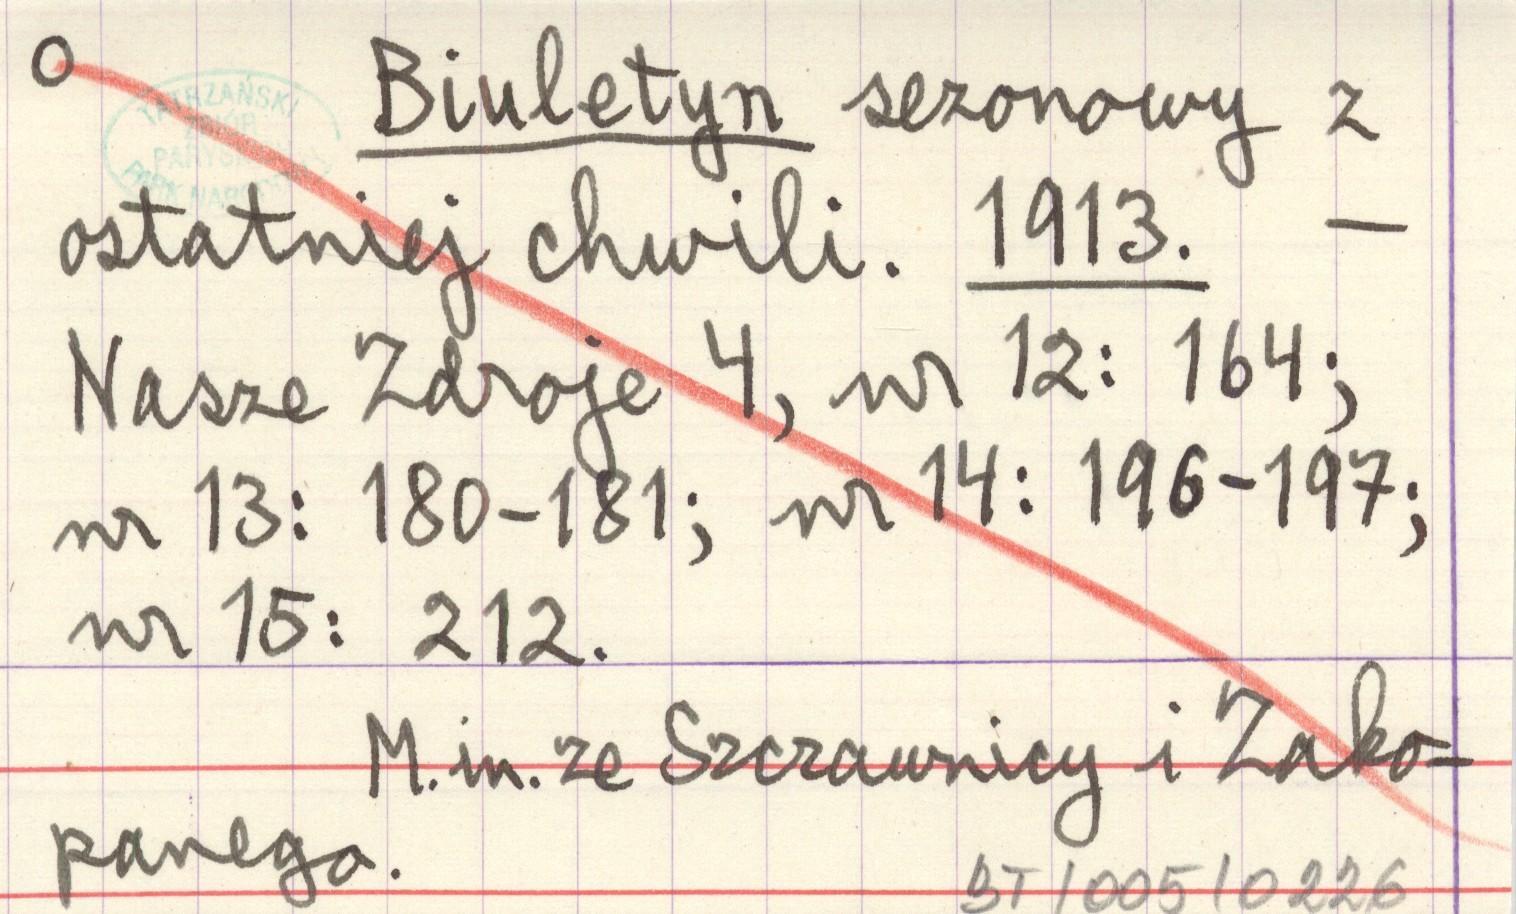 O
TATRZAŃSKI
ZBIÓR
PARK NARODOWY
Biuletyn sezonowy z
ostatniej chwili. 1913. —
Nasze Zdroje 4, nr 12: 164;
nr 13: 180-181; nr 14: 196-197;
nr 15: 212.
M.in. ze Szczawnicy i Zako-
panego.
BT/005/0226